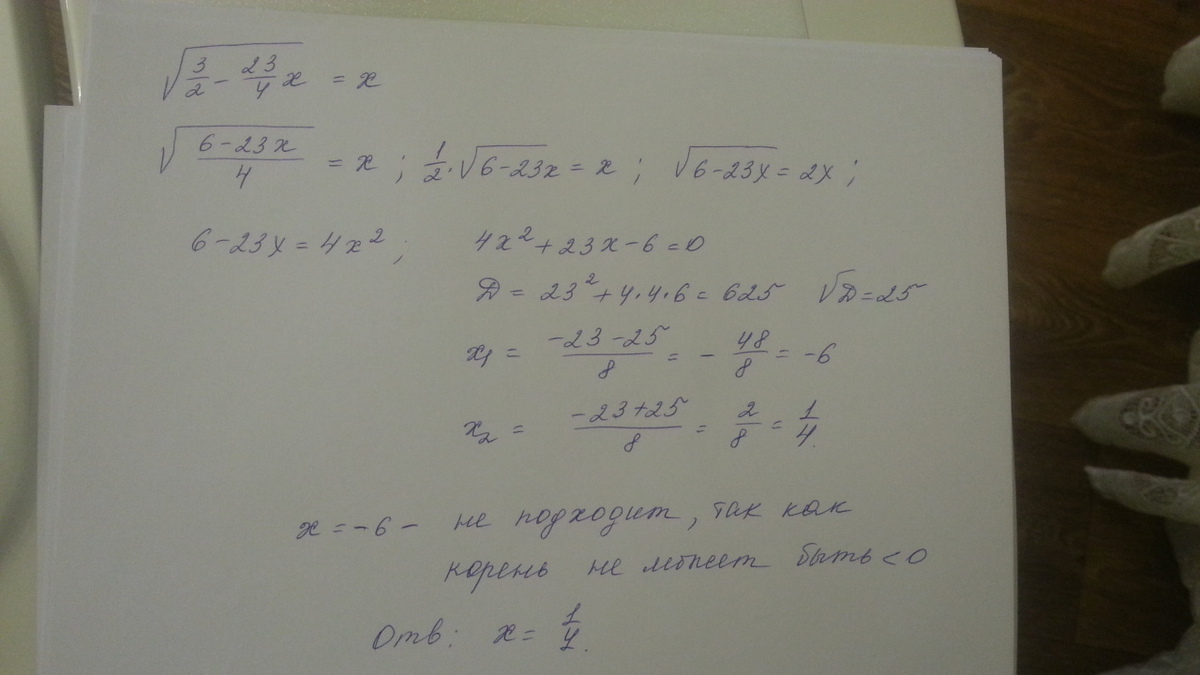 √(3/2 − 23/4 x) = x
√((6−23x)/4) = x ; 1/2 · √(6−23x) = x ; √(6−23x) = 2x ;
6−23x = 4x² ; 4x² + 23x − 6 = 0
D = 23² + 4·4·6 = 625 √D = 25
x₁ = (−23−25)/8 = − 48/8 = −6
x₂ = (−23+25)/8 = 2/8 = 1/4.
x = −6 − не подходит, так как
корень не может быть < 0
Отв: x = 1/4.